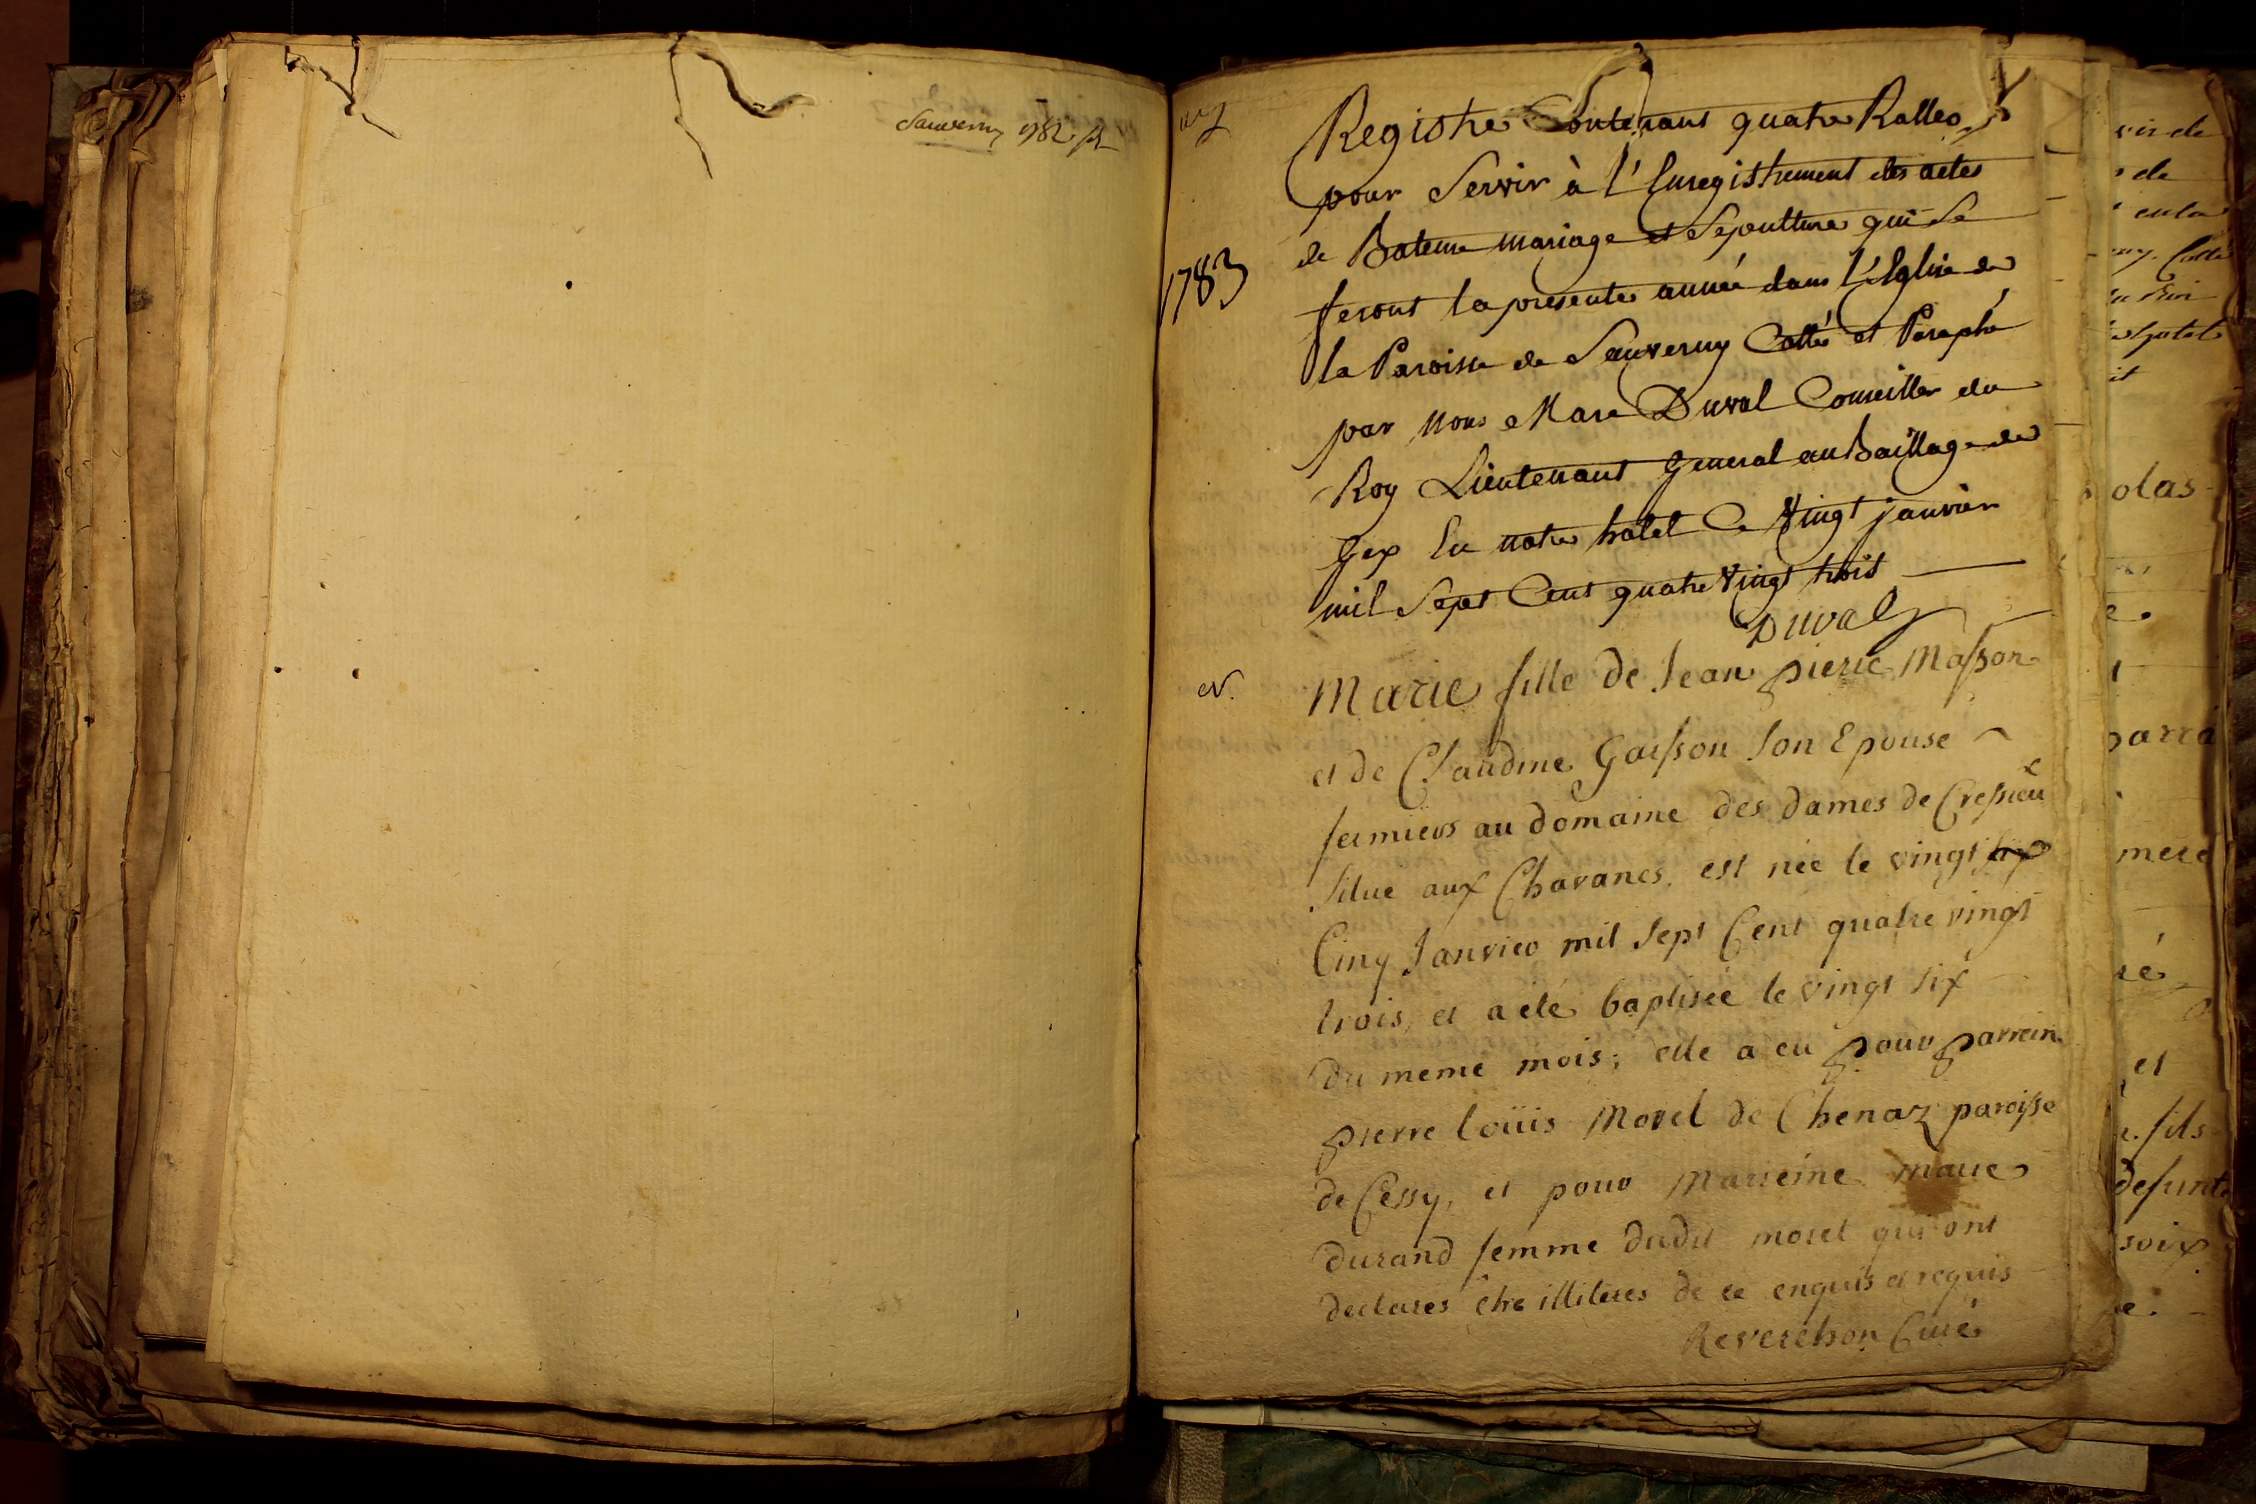 Sauverny 1782
Registre Contenant quatre Rolles
pour Servir à l'Enregistrement des actes
de Bateme mariage et Sepulture qui se
1783
feront la presente année dans l'Eglise de
la Paroisse de Sauverny Cotté et Paraphé
par nous Marc Duval Conseiller du
Roy Lieutenant general au Baillage de
Gex En notre hotel Ce Vingt janvier
mil Sept Cent quatre Vingt trois
Duval
Marie fille de Jean pierre Masson
et de Claudine Gaisson son Epouse
fermiers au domaine des dames de Cressieu
situe aux Chavanes, est née le vingt six
Cinq Janvier mil sept Cent quatre vingt
trois, et a été baptisée le vingt six
du meme mois; elle a eu pour parrein
pierre loüis Morel de Chenaz paroisse
de Cessy, et pour Marreine marie
durand femme dudit morel qui ont
declarés être illiteres de ce enquis et requis
Reverchon Curé
olas
mere
et
fils
defunte